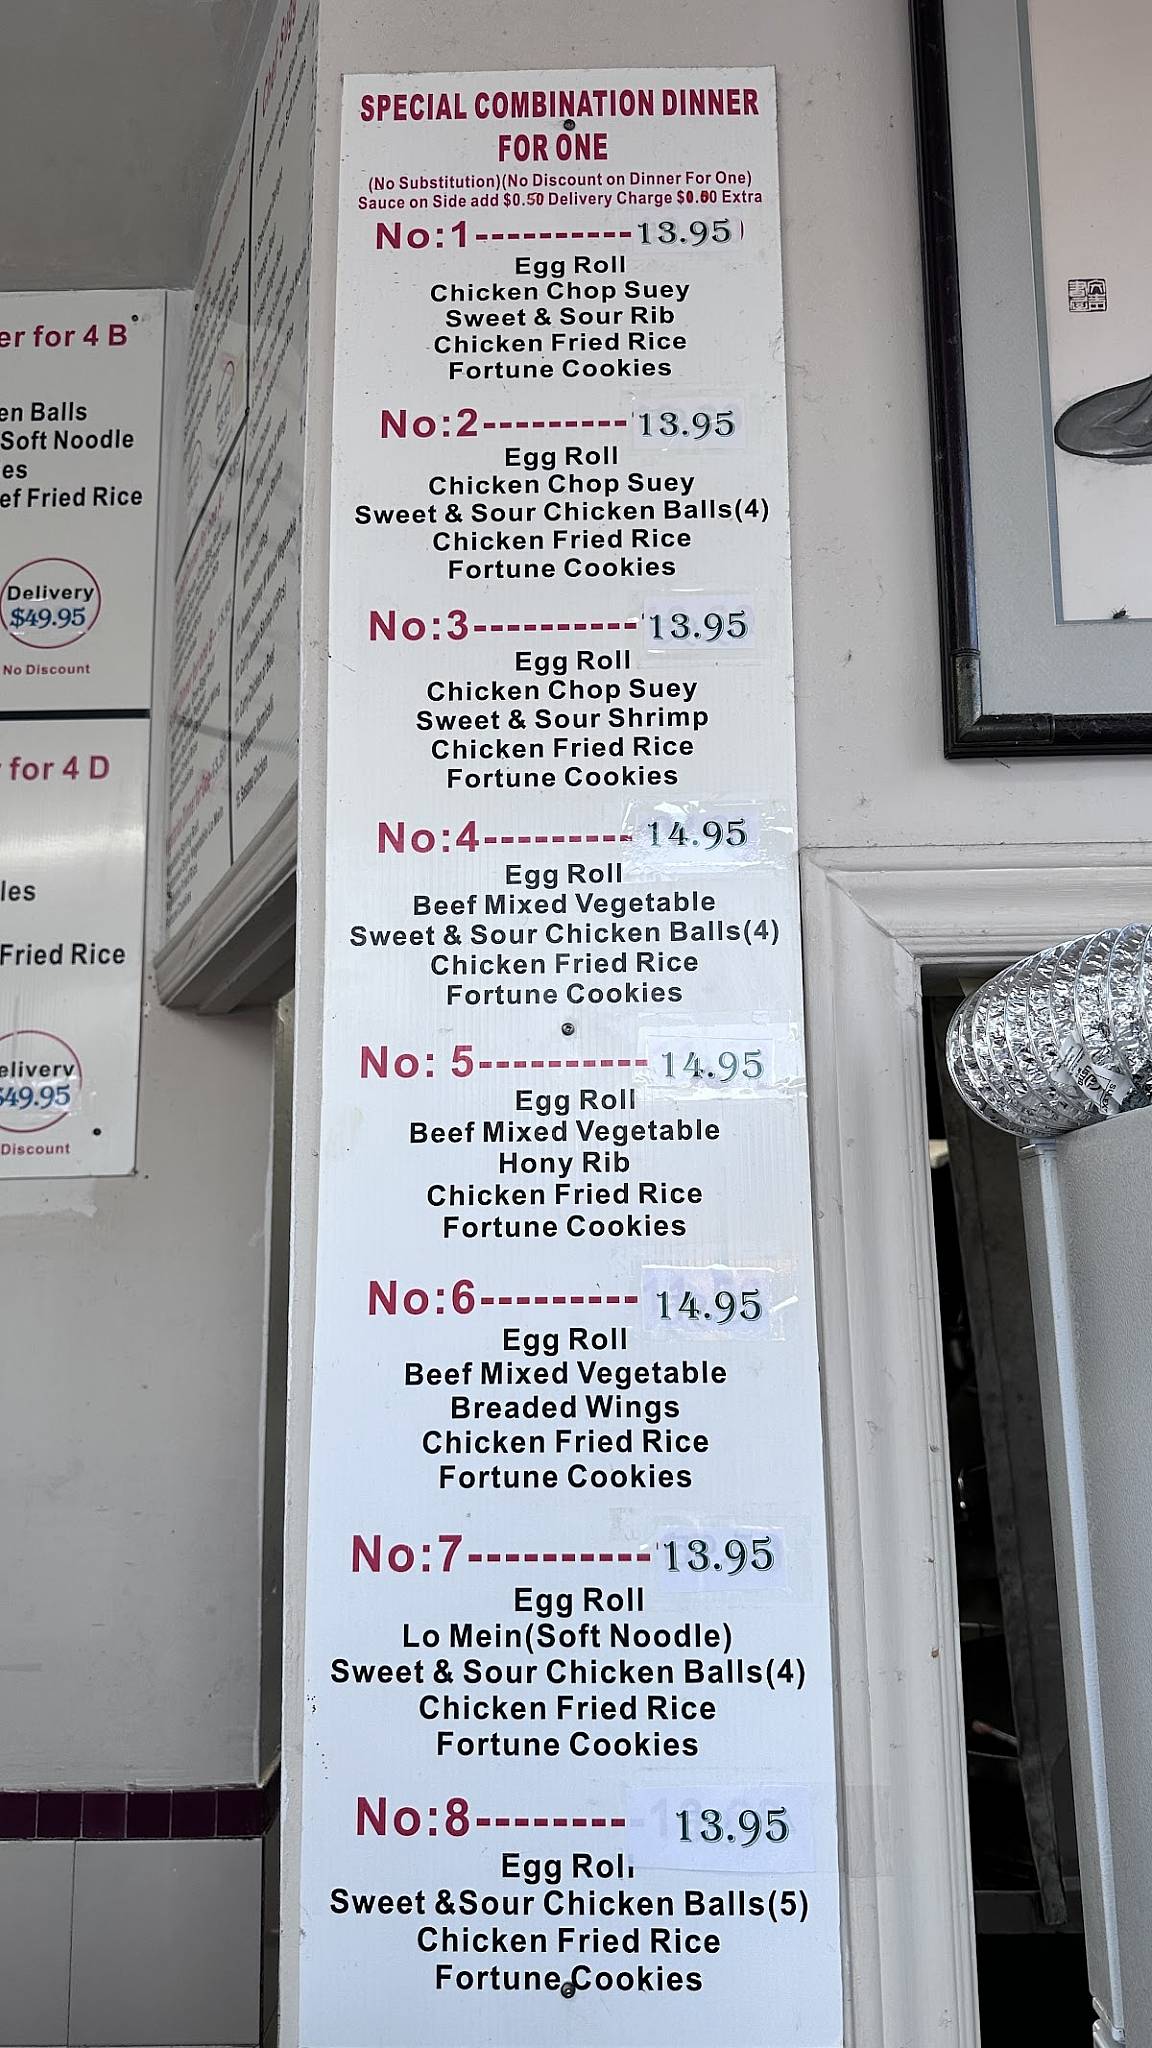 SPECIAL COMBINATION DINNER
FOR ONE
(No Substitution)(No Discount on Dinner For One)
Sauce on Side add $0.50 Delivery Charge $0.50 Extra
No:1----------13.95
Egg Roll
Chicken Chop Suey
Sweet & Sour Rib
Chicken Fried Rice
Fortune Cookies
No:2---------13.95
Egg Roll
Chicken Chop Suey
Sweet & Sour Chicken Balls(4)
Chicken Fried Rice
Fortune Cookies
No:3----------13.95
Egg Roll
Chicken Chop Suey
Sweet & Sour Shrimp
Chicken Fried Rice
Fortune Cookies
No:4---------14.95
Egg Roll
Beef Mixed Vegetable
Sweet & Sour Chicken Balls(4)
Chicken Fried Rice
Fortune Cookies
No: 5----------14.95
Egg Roll
Beef Mixed Vegetable
Hony Rib
Chicken Fried Rice
Fortune Cookies
No:6---------14.95
Egg Roll
Beef Mixed Vegetable
Breaded Wings
Chicken Fried Rice
Fortune Cookies
No:7----------13.95
Egg Roll
Lo Mein(Soft Noodle)
Sweet & Sour Chicken Balls(4)
Chicken Fried Rice
Fortune Cookies
No:8--------13.95
Egg Roll
Sweet &Sour Chicken Balls(5)
Chicken Fried Rice
Fortune Cookies
er for 4 B
en Balls
Soft Noodle
es
ef Fried Rice
Delivery
$49.95
No Discount
for 4 D
les
Fried Rice
elivery
$49.95
Discount